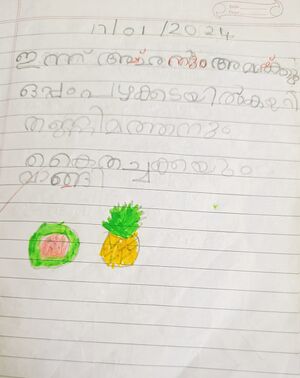 17/01/2024
ഇന്ന് അച്ഛനും അമ്മക്കും
ഒപ്പം പഴക്കടയിൽ കയറി
തണ്ണിമത്തനും
കൈതച്ചക്കയും
വാങ്ങി